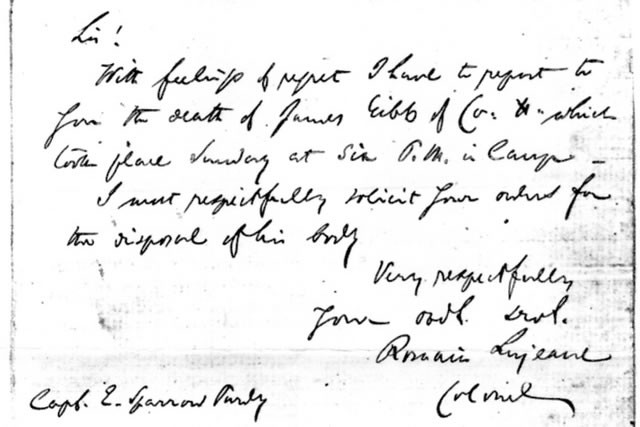 Sir!
With feelings of regret I have to report to
you the death of James Gibb of Co. H. which
took place Sunday at Six P.M. in Camp –
I must respectfully solicit your orders for
the disposal of his body
Very respectfully
Your obdt. Servt.
Romain Lujeane
Colonel
Capt. E. Sparrow Purdy